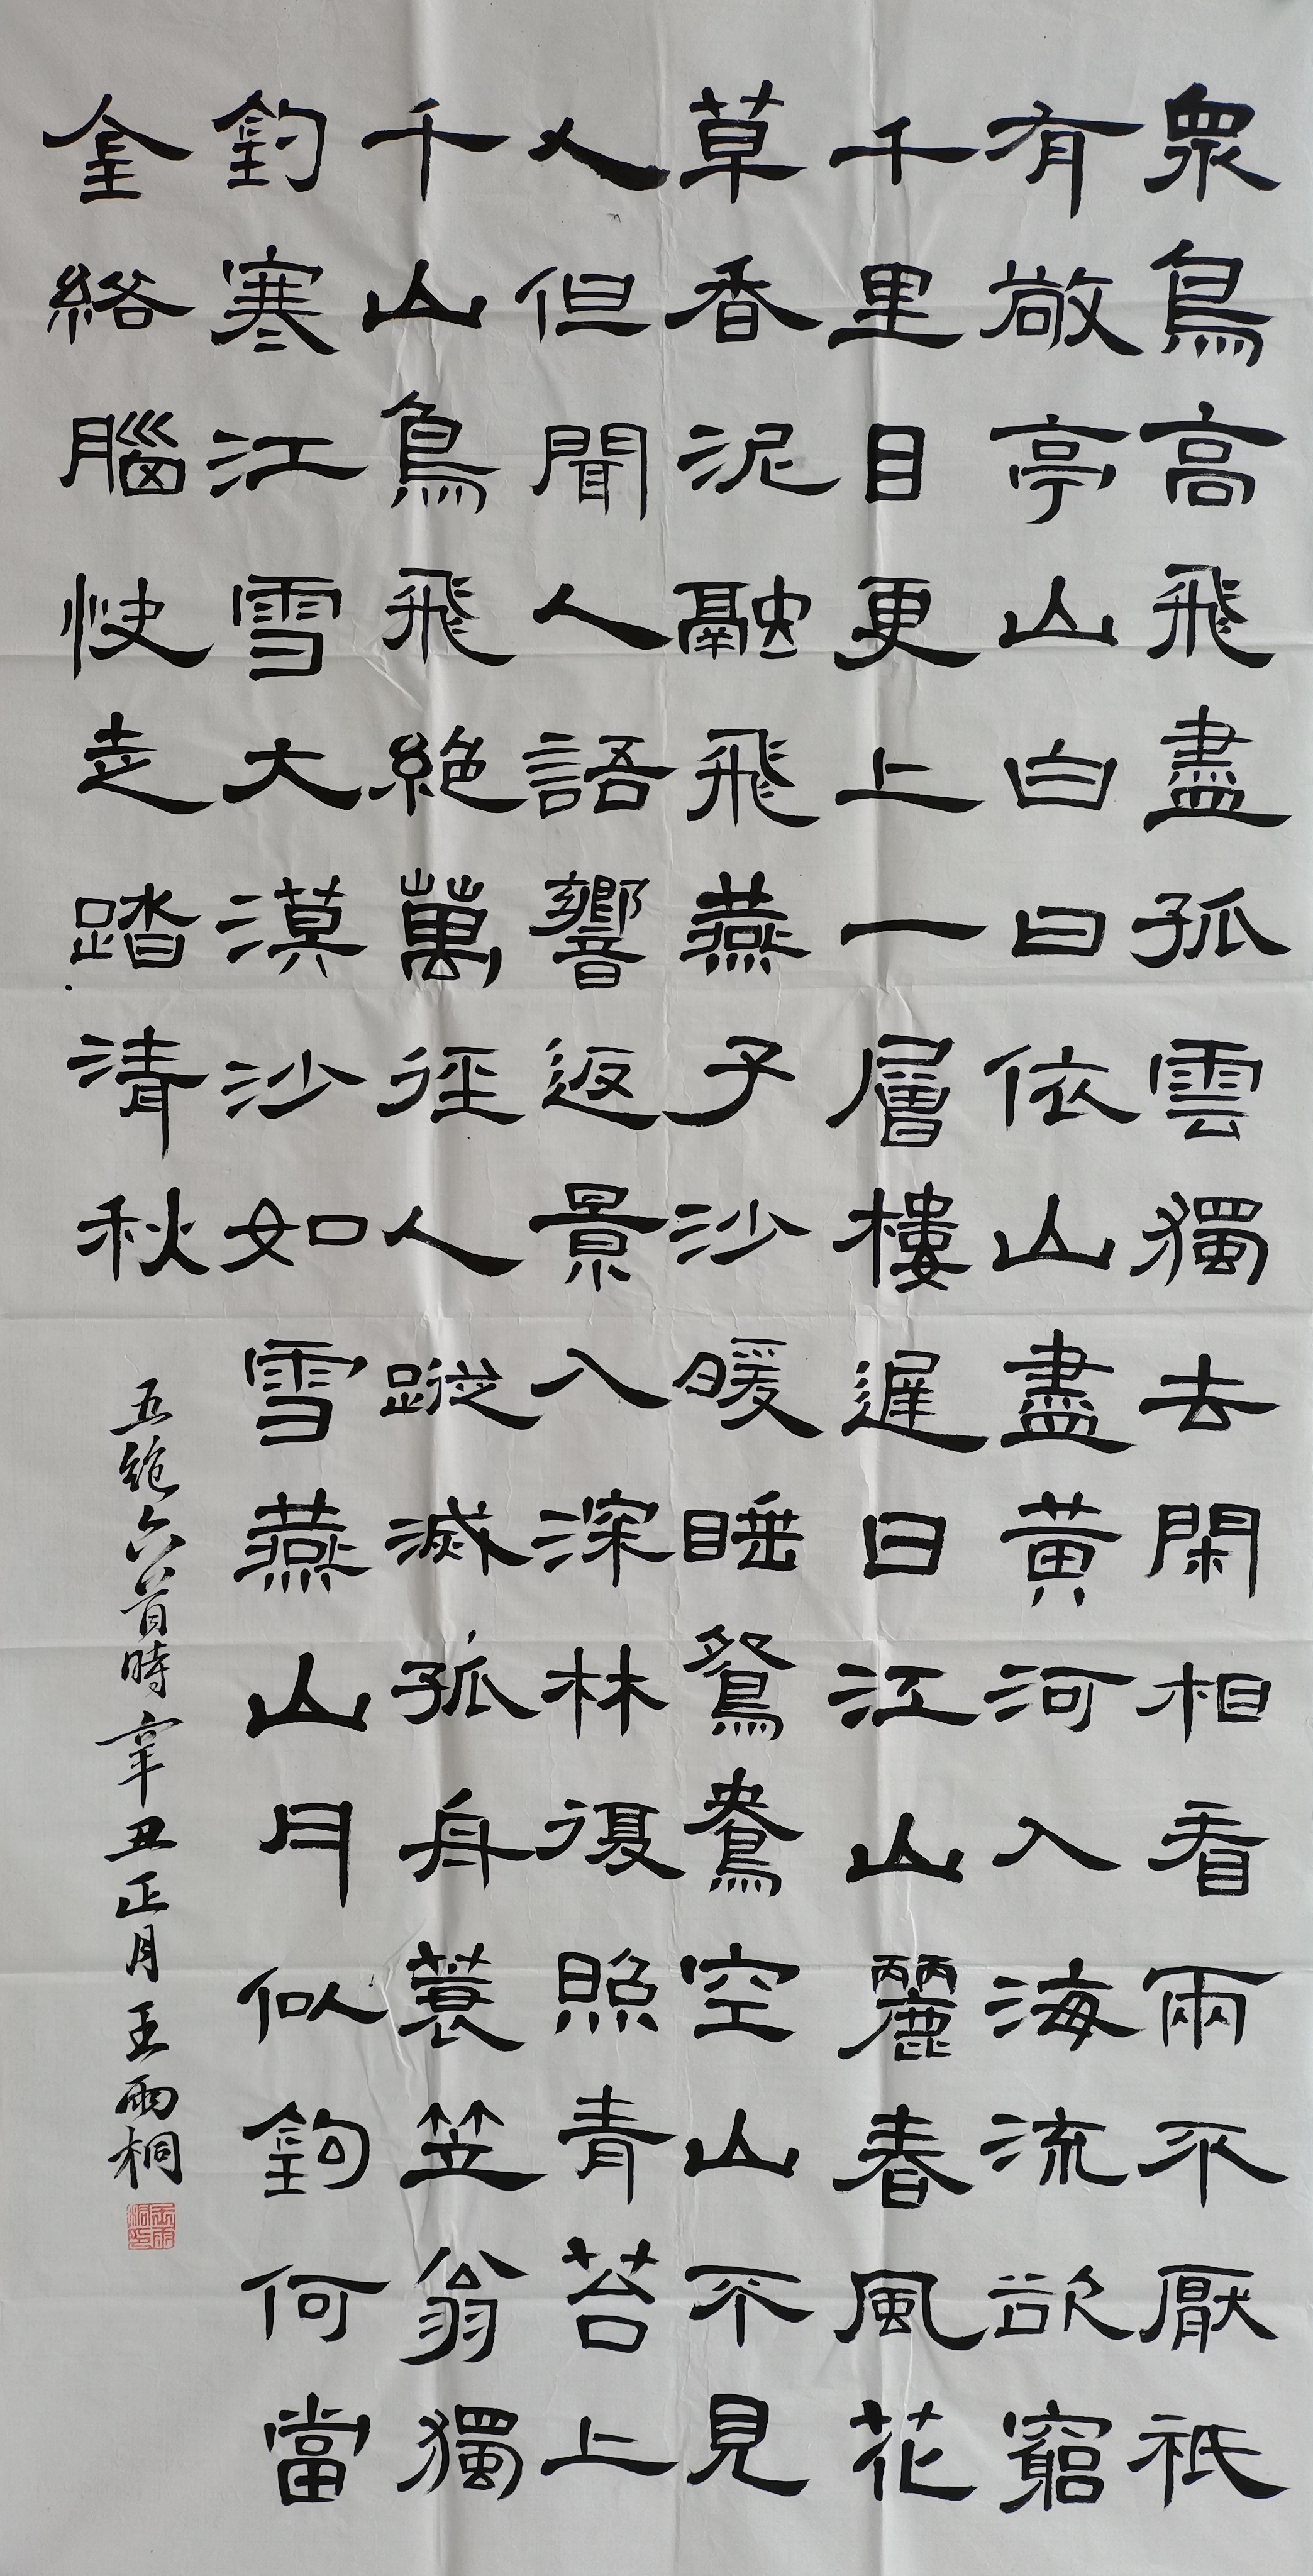 眾鳥高飛盡孤雲獨去閑相看兩不厭祇
有敬亭山白日依山盡黃河入海流欲窮
千里目更上一層樓遲日江山麗春風花
草香泥融飛燕子沙暖睡鴛鴦空山不見
人但聞人語響返景入深林復照青苔上
千山鳥飛絕萬徑人蹤滅孤舟蓑笠翁獨
釣寒江雪大漠沙如雪燕山月似鉤何當
金絡腦快走踏清秋
五絕六首時辛丑正月王雨桐